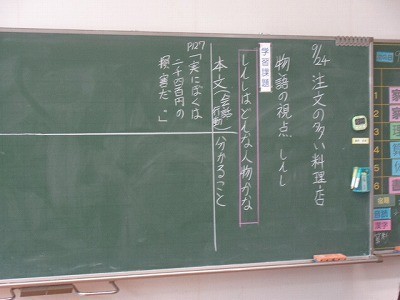 9/24 注文の多い料理店
物語の視点 しんし
学習課題
しんしはどんな人物かな
本文(会話 行動) 分かること
P127
「実にぼくは
二千四百円の
損害だ。」
国語
漢字